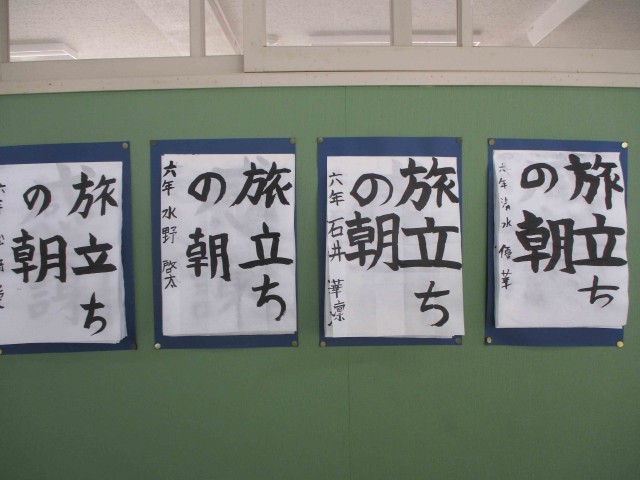 旅立ち
の朝
六年 清水 優華
旅立ち
の朝
六年 石井 華凛
旅立ち
の朝
六年 水野 啓太
旅立ち
の朝
六年